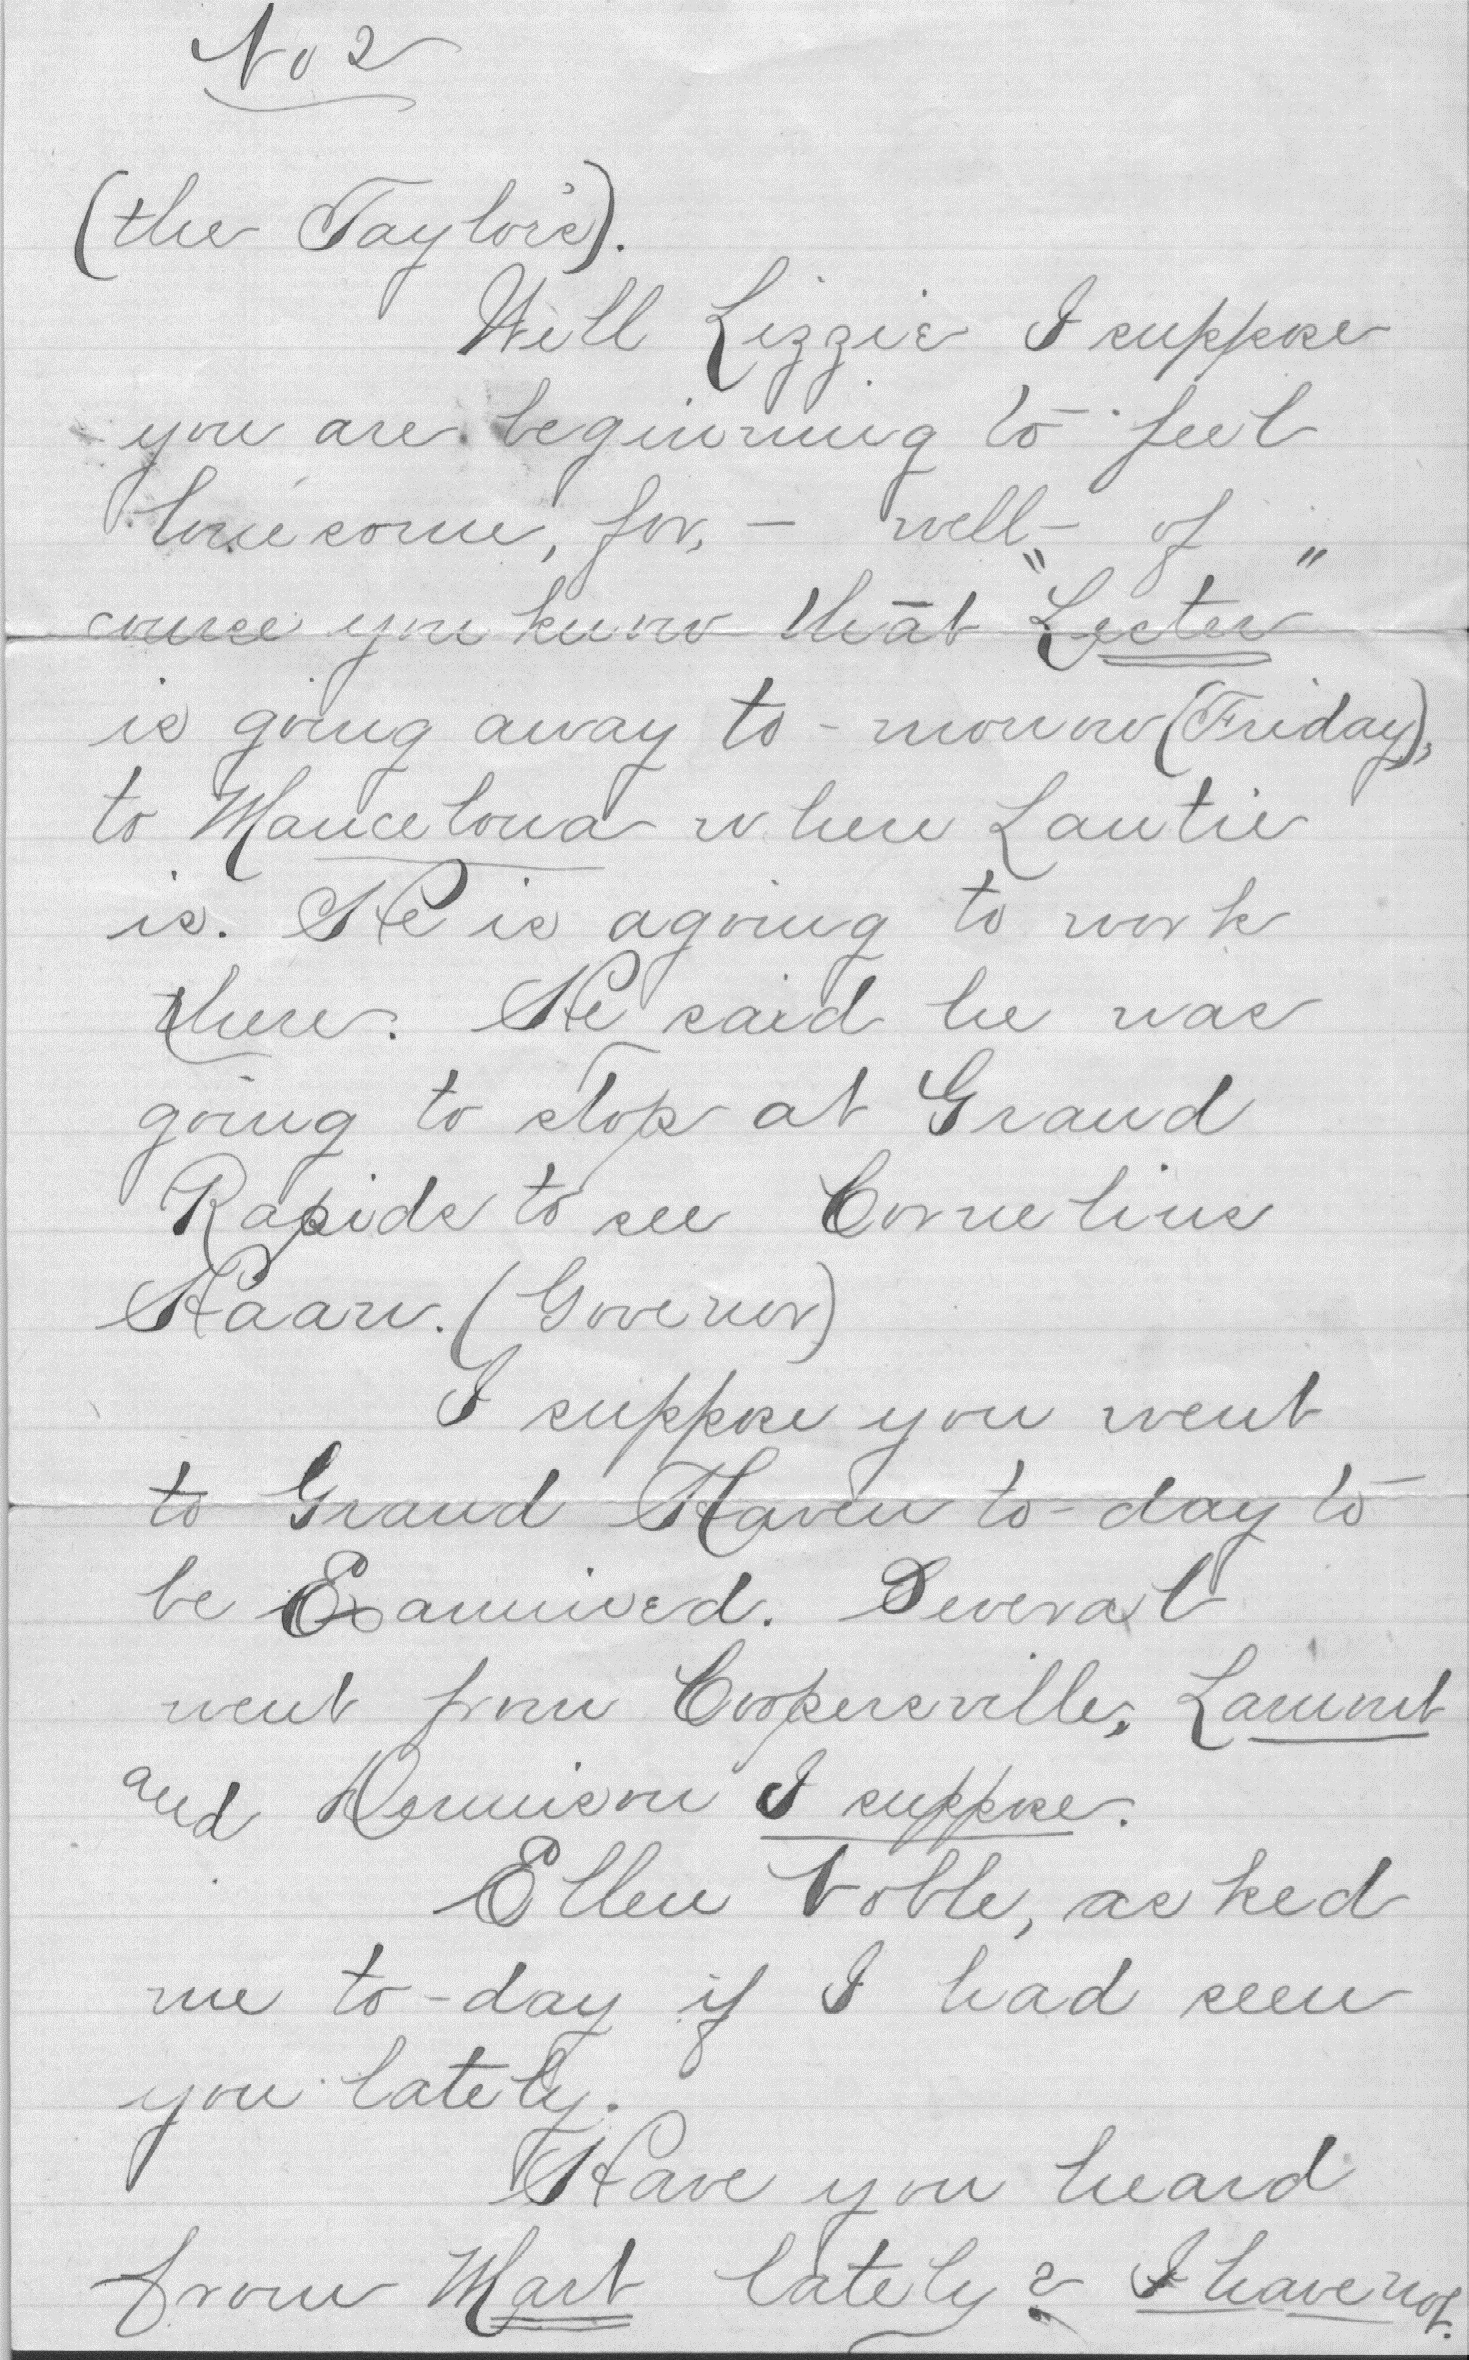 No 2
(the Taylor's).
Well Lizzie I suppose
you are beginning to feel
lonesome, for, – well – of
course you know that "Lester"
is going away to-morrow (Friday),
to Mancelona where Lautie
is. He is agoing to work
there. He said he was
going to stop at Grand
Rapids to see Cornelius
Haan. (Governor)
I suppose you went
to Grand Haven to-day to
be Examined. Several
went from Coopersville, Lamont
and Dennison I suppose.
Ellen Noble, asked
me to-day if I had seen
you lately.
Have you heard
from Mart lately? I have not.